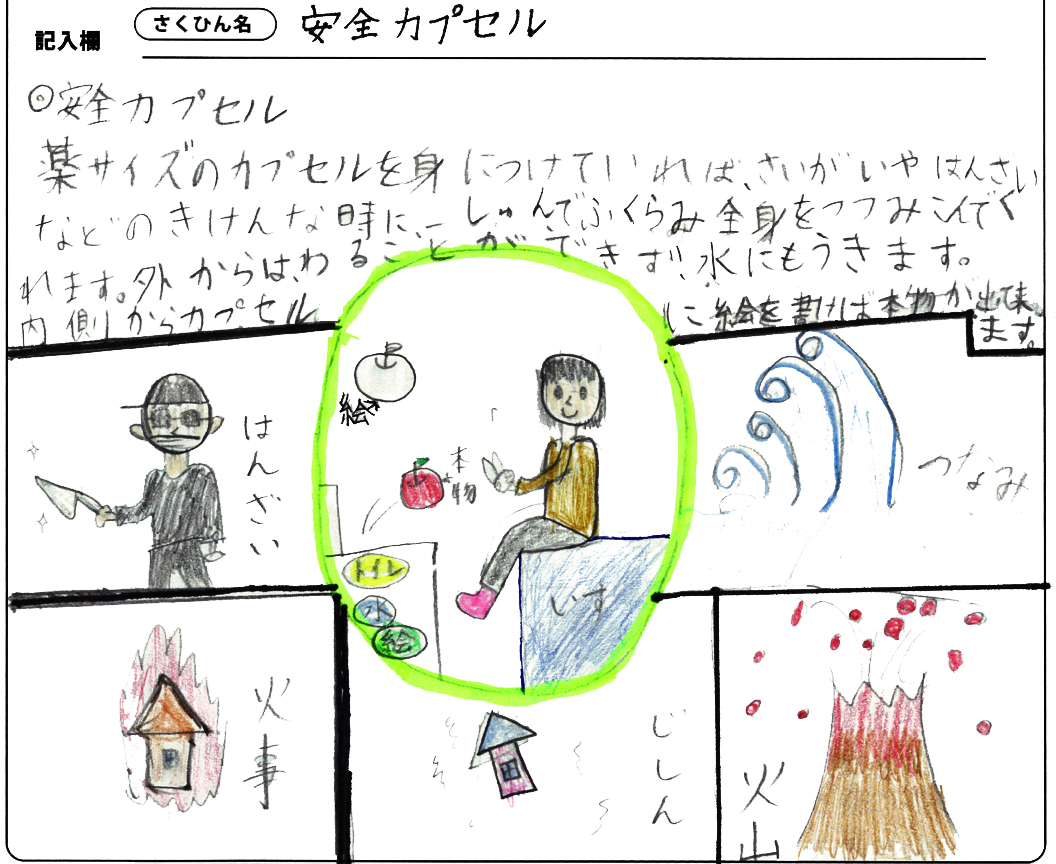 記入欄
さくひん名
安全カプセル
◎安全カプセル
薬サイズのカプセルを身につけていれば、さいがいやはんざい
などのきけんな時に、一しゅんでふくらみ全身をつつみこんでく
れます。外からは、わることができず、水にもうきます。
内側からカプセルに絵を書けば本物が出来
ます。
絵
本物
はんざい
つなみ
トイレ
水
絵
いす
火事
じしん
火山